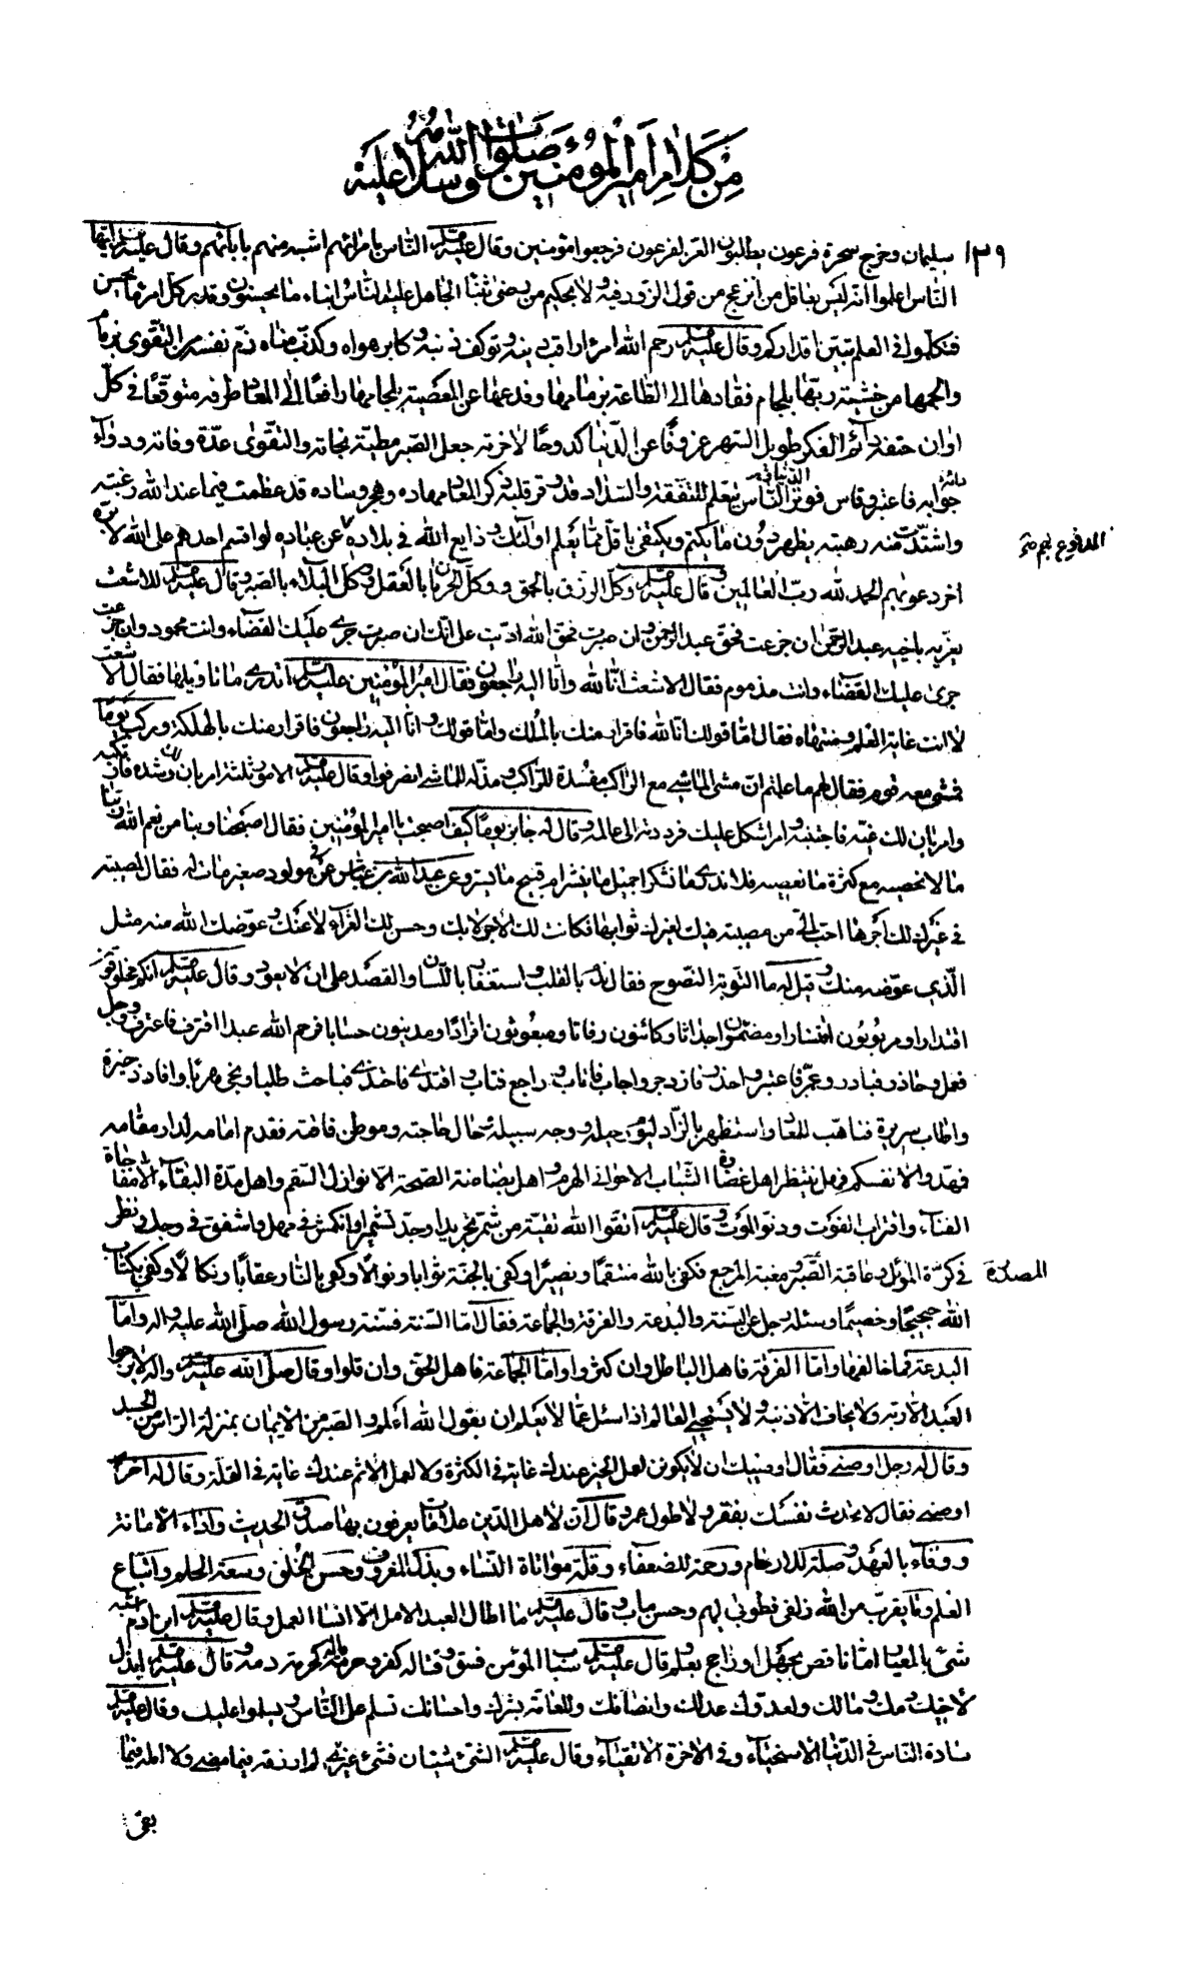 من كلام امير المؤمنين صلوات الله وسلامه عليه
١٣٩
سليمان وخرج سحرة فرعون يطلبون العز لفرعون فرجعوا مؤمنين وقال عليه السلم الناس بامرائهم اشبه منهم بابائهم وقال عليه السلم ايها
الناس اعلموا انه ليس بعاقل من انزعج من قول الزور فيه ولا بحكيم من رضى بثناء الجاهل عليه الناس ابناء ما يحسنون وقدر كل امرء ما يحسن
فتكلموا في العلم تبين اقداركم وقال عليه السلم رحم الله امرءا راقب ربه وتوكف ذنبه وكابر هواه وكذب مناه زم نفسه من التقوى بزمام
والجمها من خشية ربها بلجام فقادها الى الطاعة بزمامها وقدعها عن المعصية بلجامها رافعا الى المعاد طرفه متوقعا في كل
اوان حتفه دائم الفكر طويل السهر عزوفا عن الدنيا كدوحا لاخرته جعل الصبر مطية نجاته والتقوى عدة وفاته ودواء
جوابه فاعتبر وقاس فوتر الناس يتعلم للتفقه والسداد قد وقر قلبه ذكر المعاد مهاده وهجر وساده قد عظمت فيما عند الله رغبته
واشتدت منه رهبته يظهر دون ما يكتم ويكتفي باقل مما يعلم اولئك ودايع الله في بلاده عن عباده لو اقسم احدهم على الله لابره
المدفوع بهم
اخر دعويهم الحمد لله رب العالمين وقال عليه السلم وكل الرزق بالحمق ووكل الحرمان بالعقل ووكل البلاء بالصبر وقال عليه السلم للاشعث
يعزيه باخيه عبد الرحمن ان جزعت فحق عبد الرحمن وفيت وان صبرت فحق الله اديت على انك ان صبرت جرى عليك القضاء وانت محمود وان جزعت
جرى عليك القضاء وانت مذموم فقال الاشعث انا لله وانا اليه راجعون فقال امير المؤمنين عليه السلم اتدري ما تاويلها فقال الاشعث
لا انت غاية العلم ومنتهاه فقال اما قولك انا لله فاقرار منك بالملك واما قولك وانا اليه راجعون فاقرار منك بالهلكة وركب يوما
فمشى معه قوم فقال لهم ما علمتم ان مشى الماشي مع الراكب مفسدة للراكب ومذلة للماشي انصرفوا وقال عليه السلم الامور ثلثة امر بان لك رشده فاتبعه
وامر بان لك غيه فاجتنبه وامر اشكل عليك فرددته الى عالمه وقال له جابر يوما كيف اصبحت يا امير المؤمنين فقال اصبحنا وبنا من نعم الله ربنا
ما لا نحصيه مع كثرة ما نعصيه فلا ندري ما نشكر اجميل ما ينشر ام قبيح ما يستر وعزى عبد الله بن عباس عن مولود صغير مات له فقال لمصيبة
في غيرك لك اجرها احب الي من مصيبة فيك لغيرك ثوابها فكان لك الاجر لا بك وحسن لك العزاء لا عنك وعوضك الله منه مثل
الذي عوضه منك وقيل له ما التوبة النصوح فقال ندم بالقلب واستغفار باللسان والقصد على ان لا يعود وقال عليه السلم انكم مخلوقون
اقتدارا ومربوبون اقتسارا ومضمنون اجداثا وكائنون رفاتا ومبعوثون افرادا ومدينون حسابا فرحم الله عبدا اقترف فاعترف ووجل
فعمل وحاذر فبادر وعمر فاعتبر وحذر فازدجر واجاب فاناب وراجع فتاب واقتدى فاحتذى فباحث طلبا ونجى هربا وافاد ذخيرة
واطاب سريرة وتاهب للمعاد واستظهر بالزاد ليوم رحيله ووجه سبيله وحال حاجته وموطن فاقته فقدم امامه لدار مقامه
فمهدوا لانفسكم فهل ينتظر اهل غضارة الشباب الا حوانى الهرم واهل بضاضة الصحة الا نوازل السقم واهل مدة البقاء الا مفاجاة
الفناء واقتراب الفوت ودنو الموت وقال عليه السلم اتقوا الله تقية من شمر تجريدا وجد تشميرا وانكمش في مهل واشفق في وجل ونظر
في كرة الموئل وعاقبة الصبر ومغبة المرجع فكفى بالله منتقما ونصيرا وكفى بالجنة ثوابا ونوالا وكفى بالنار عقابا ونكالا وكفى بكتاب
المصدر
الله حجيجا وخصيما وسئله رجل عن السنة والبدعة والفرقة والجماعة فقال اما السنة فسنة رسول الله صلى الله عليه واله واما
البدعة فما خالفها واما الفرقة فاهل الباطل وان كثروا واما الجماعة فاهل الحق وان قلوا وقال صلى الله عليه واله لا يرجوا
العبد الا ربه ولا يخاف الا ذنبه ولا يستحيي العالم اذا سئل عما لا يعلم ان يقول الله اعلم والصبر من الايمان بمنزلة الراس من الجسد
وقال له رجل اوصني فقال اوصيك ان لا يكونن لعمل الخير عندك غاية في الكثرة ولا لعمل الاثم عندك غاية في القلة وقال له اخر
اوصني فقال لا تحدث نفسك بفقر ولا طول عمر وقال ان لاهل الدين علامات يعرفون بها صدق الحديث واداء الامانة
ووفاء بالعهد وصلة للارحام ورحمة للضعفاء وقلة مواتاة النساء وبذل المعروف وحسن الخلق وسعة الحلم واتباع
العلم وما يقرب من الله زلفى فطوبى لهم وحسن ماب وقال عليه السلم ما اطال العبد الامل الا انساه العمل وقال عليه السلم ابن ادم اشبه
شئ بالمعيار اما ناقص بجهل او راجح بعلم وقال عليه السلم سباب المؤمن فسق وقتاله كفر وحرمة ماله كحرمة دمه وقال عليه السلم ابذل
لاخيك دمك ومالك ولعدوك عدلك وانصافك وللعامة بشرك واحسانك تسلم على الناس ويسلموا عليك وقال عليه السلم
سادة الناس في الدنيا الاسخياء وفي الاخرة الاتقياء وقال عليه السلم الشئ شيئان فشئ غيرى لم ارزقه فيما مضى ولا امله فيما
بقى